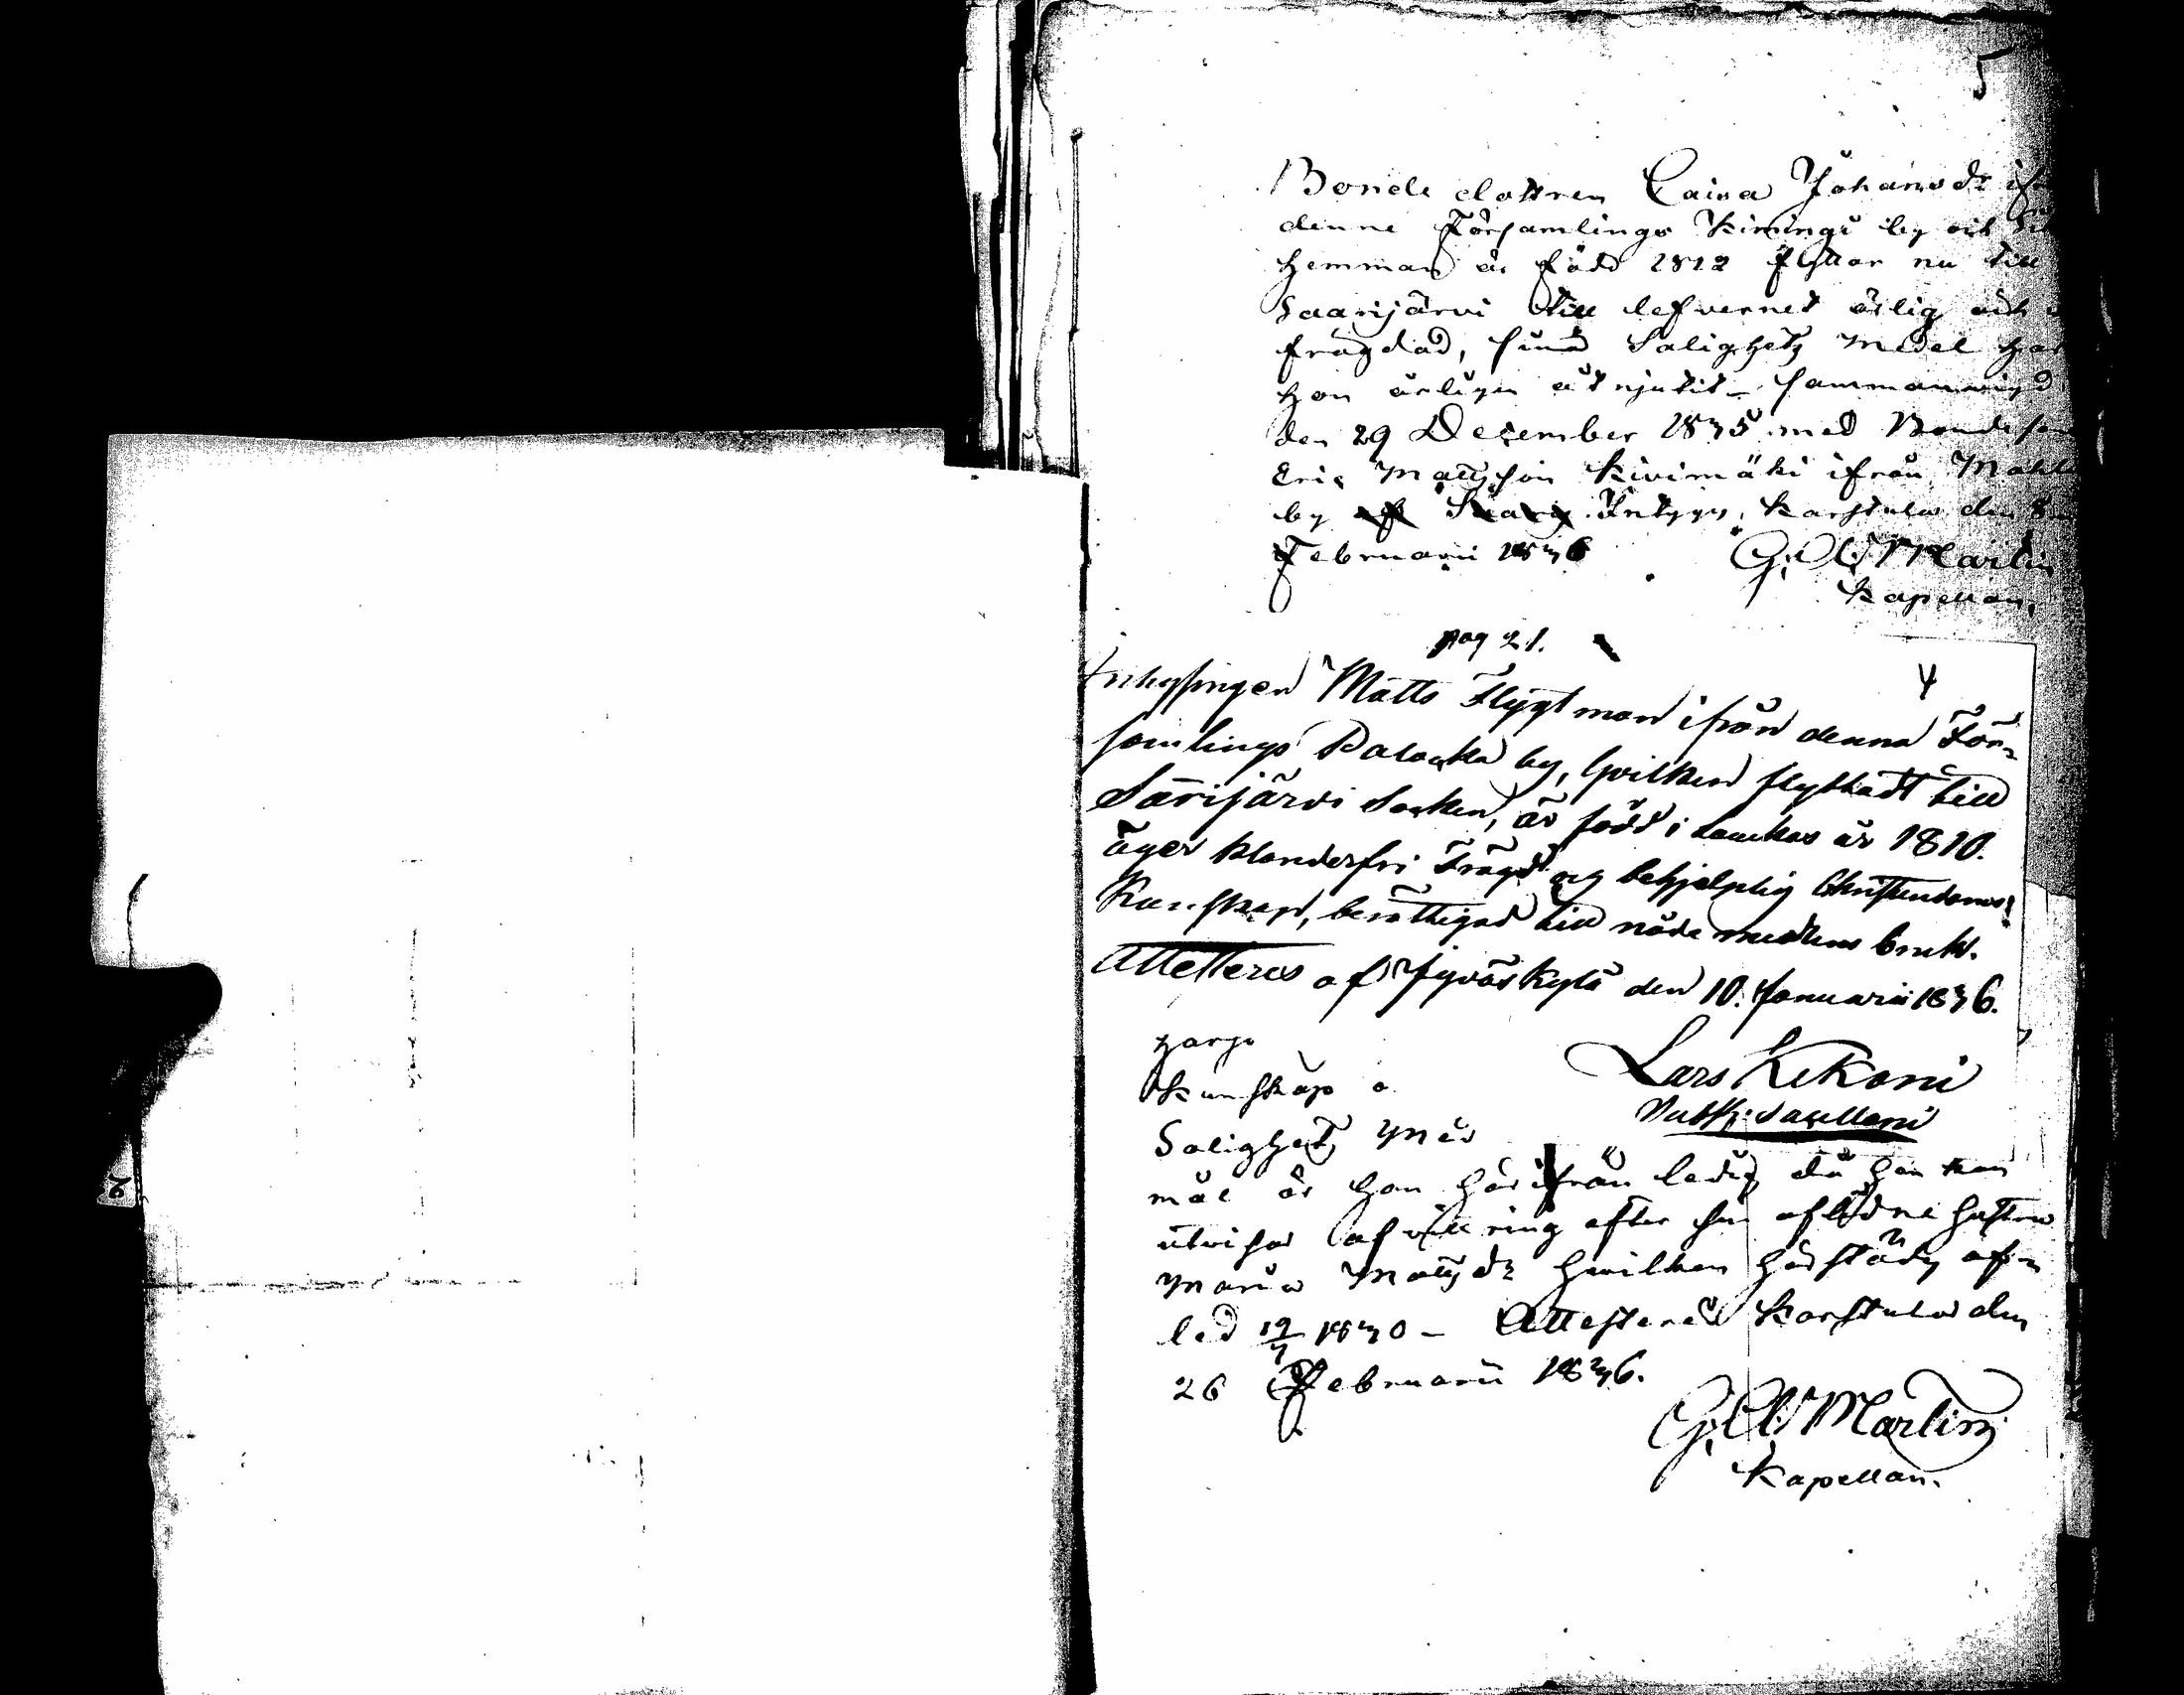 5
Bonde dottren Caisa Johansdr ifr
denne Församlings Kimingi by och
hemman är född 1812 flyttar nu till
Saarijärvi till lefvernet ärlig och
frägdad, sund Salighetz Medel har
hon årligen åtnjutit - sammanvigd
den 29 December 1835 med Bondeson
Eric Mattsson Kivimäki ifrån Mahlu
by Intygar, Karstula den 8
Februarii 1836 G: A: Martin
Kapellan,
pag 21.
4
Inhysingen Matts Flygtman ifrån denna För-
samlings Palocka by, hvilken flyttadt till
Sarijärvi Socken, är född i Laukas år 1810.
äger klanderfri Frägd og behjelplig Christendoms
Kunskap, berättigad till nådemedlens bruk.
Attesteras af Jyväskylä den 10. Januarii 1836.
Lars Kekoni
Sacellani
harjo
Kunskap o
Salighetz Med
mål är han härifrån ledig då han kan
utvisa afvittring efter sin aflidne hustru
Maria Matsdr hvilken härstädes af-
led 19/7 1830 - Attesterar Karstula den
26 Februarii 1836.
G: A: Martin
Kapellan.
2